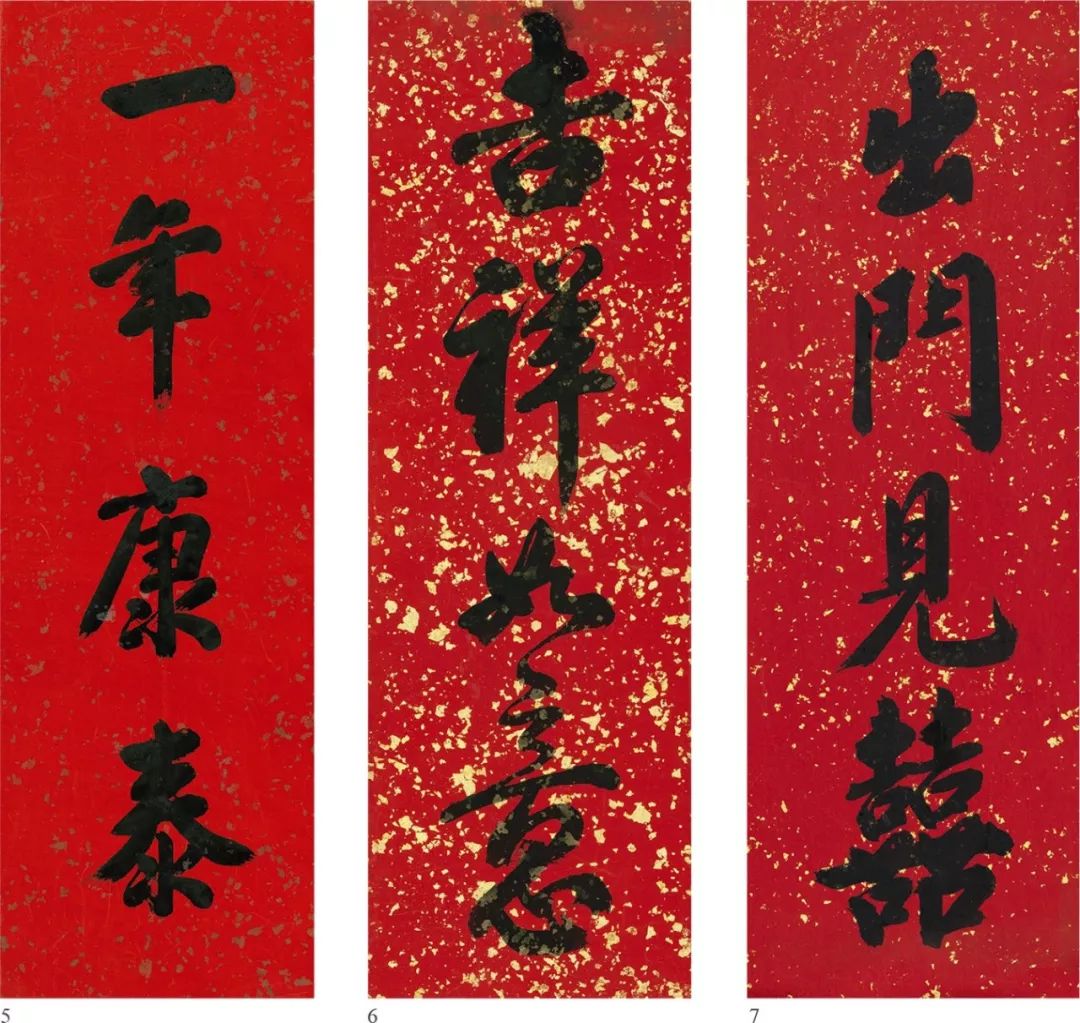 一年康泰
吉祥如意
出門見囍
5
6
7